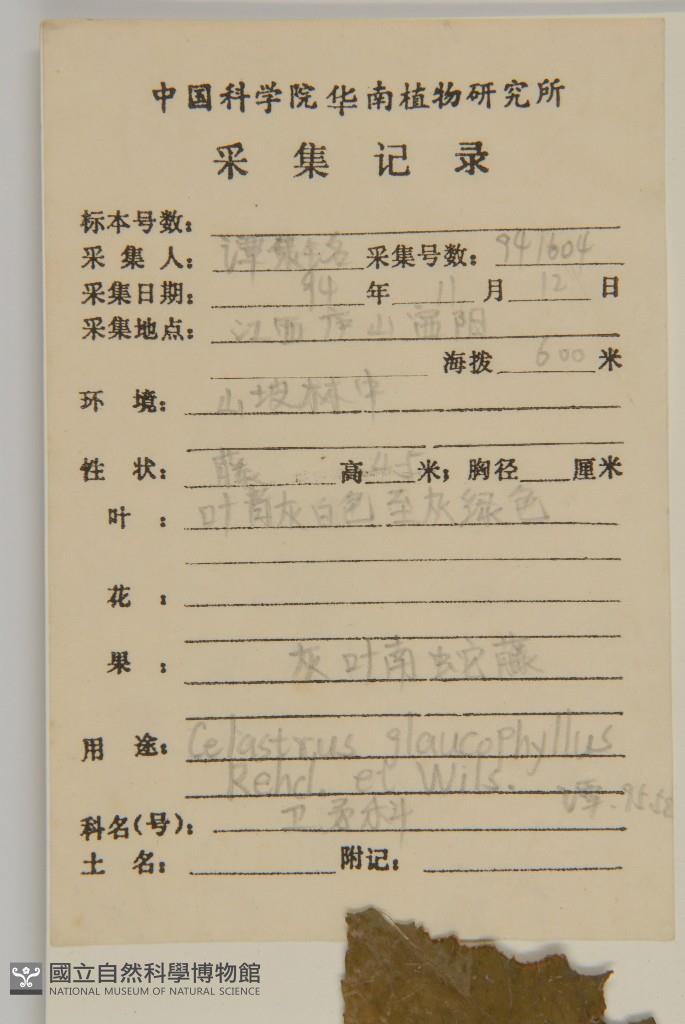 中国科学院华南植物研究所
采集记录
标本号数：
采集人：谭 采集号数：941604
采集日期：94年11月12日
采集地点：江西庐山
海拨600米
环境：山坡林中
性状：藤 高4.5米；胸径 厘米
叶：叶背灰白色至灰绿色
花：
果：
灰叶南蛇藤
用途：Celastrus glaucophyllus
Rehd. et Wils.
谭.
科名(号)：卫矛科
土名： 附记：
國立自然科學博物館
NATIONAL MUSEUM OF NATURAL SCIENCE